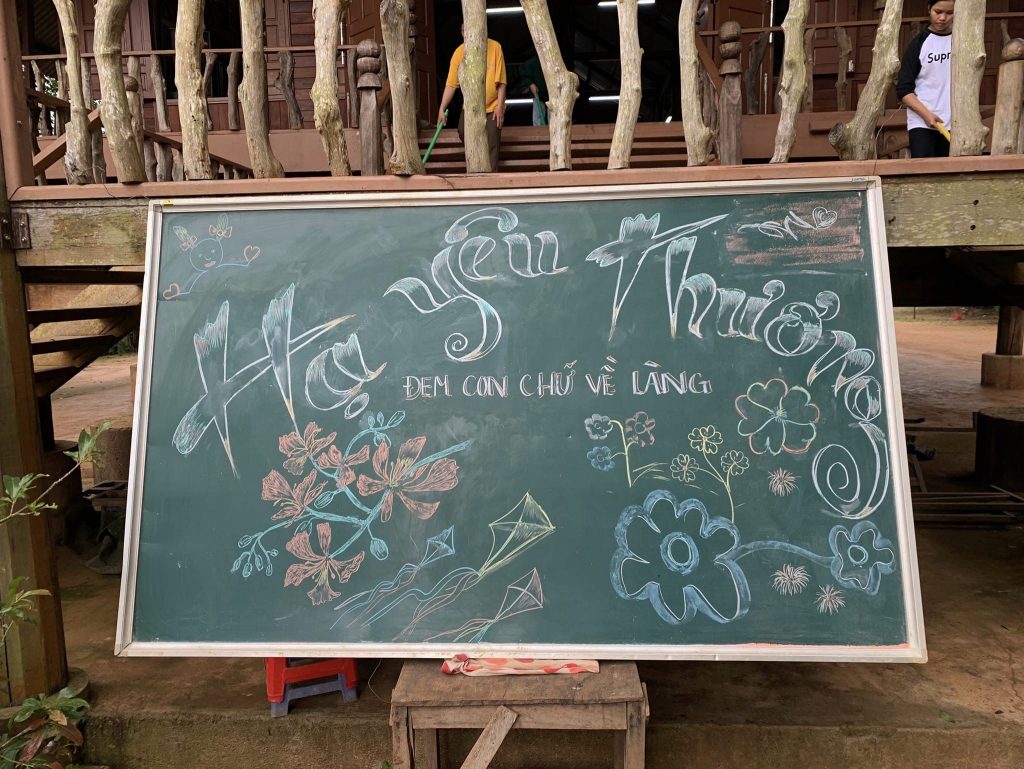 Hạ Yêu Thương
ĐEM CON CHỮ VỀ LÀNG
Supr